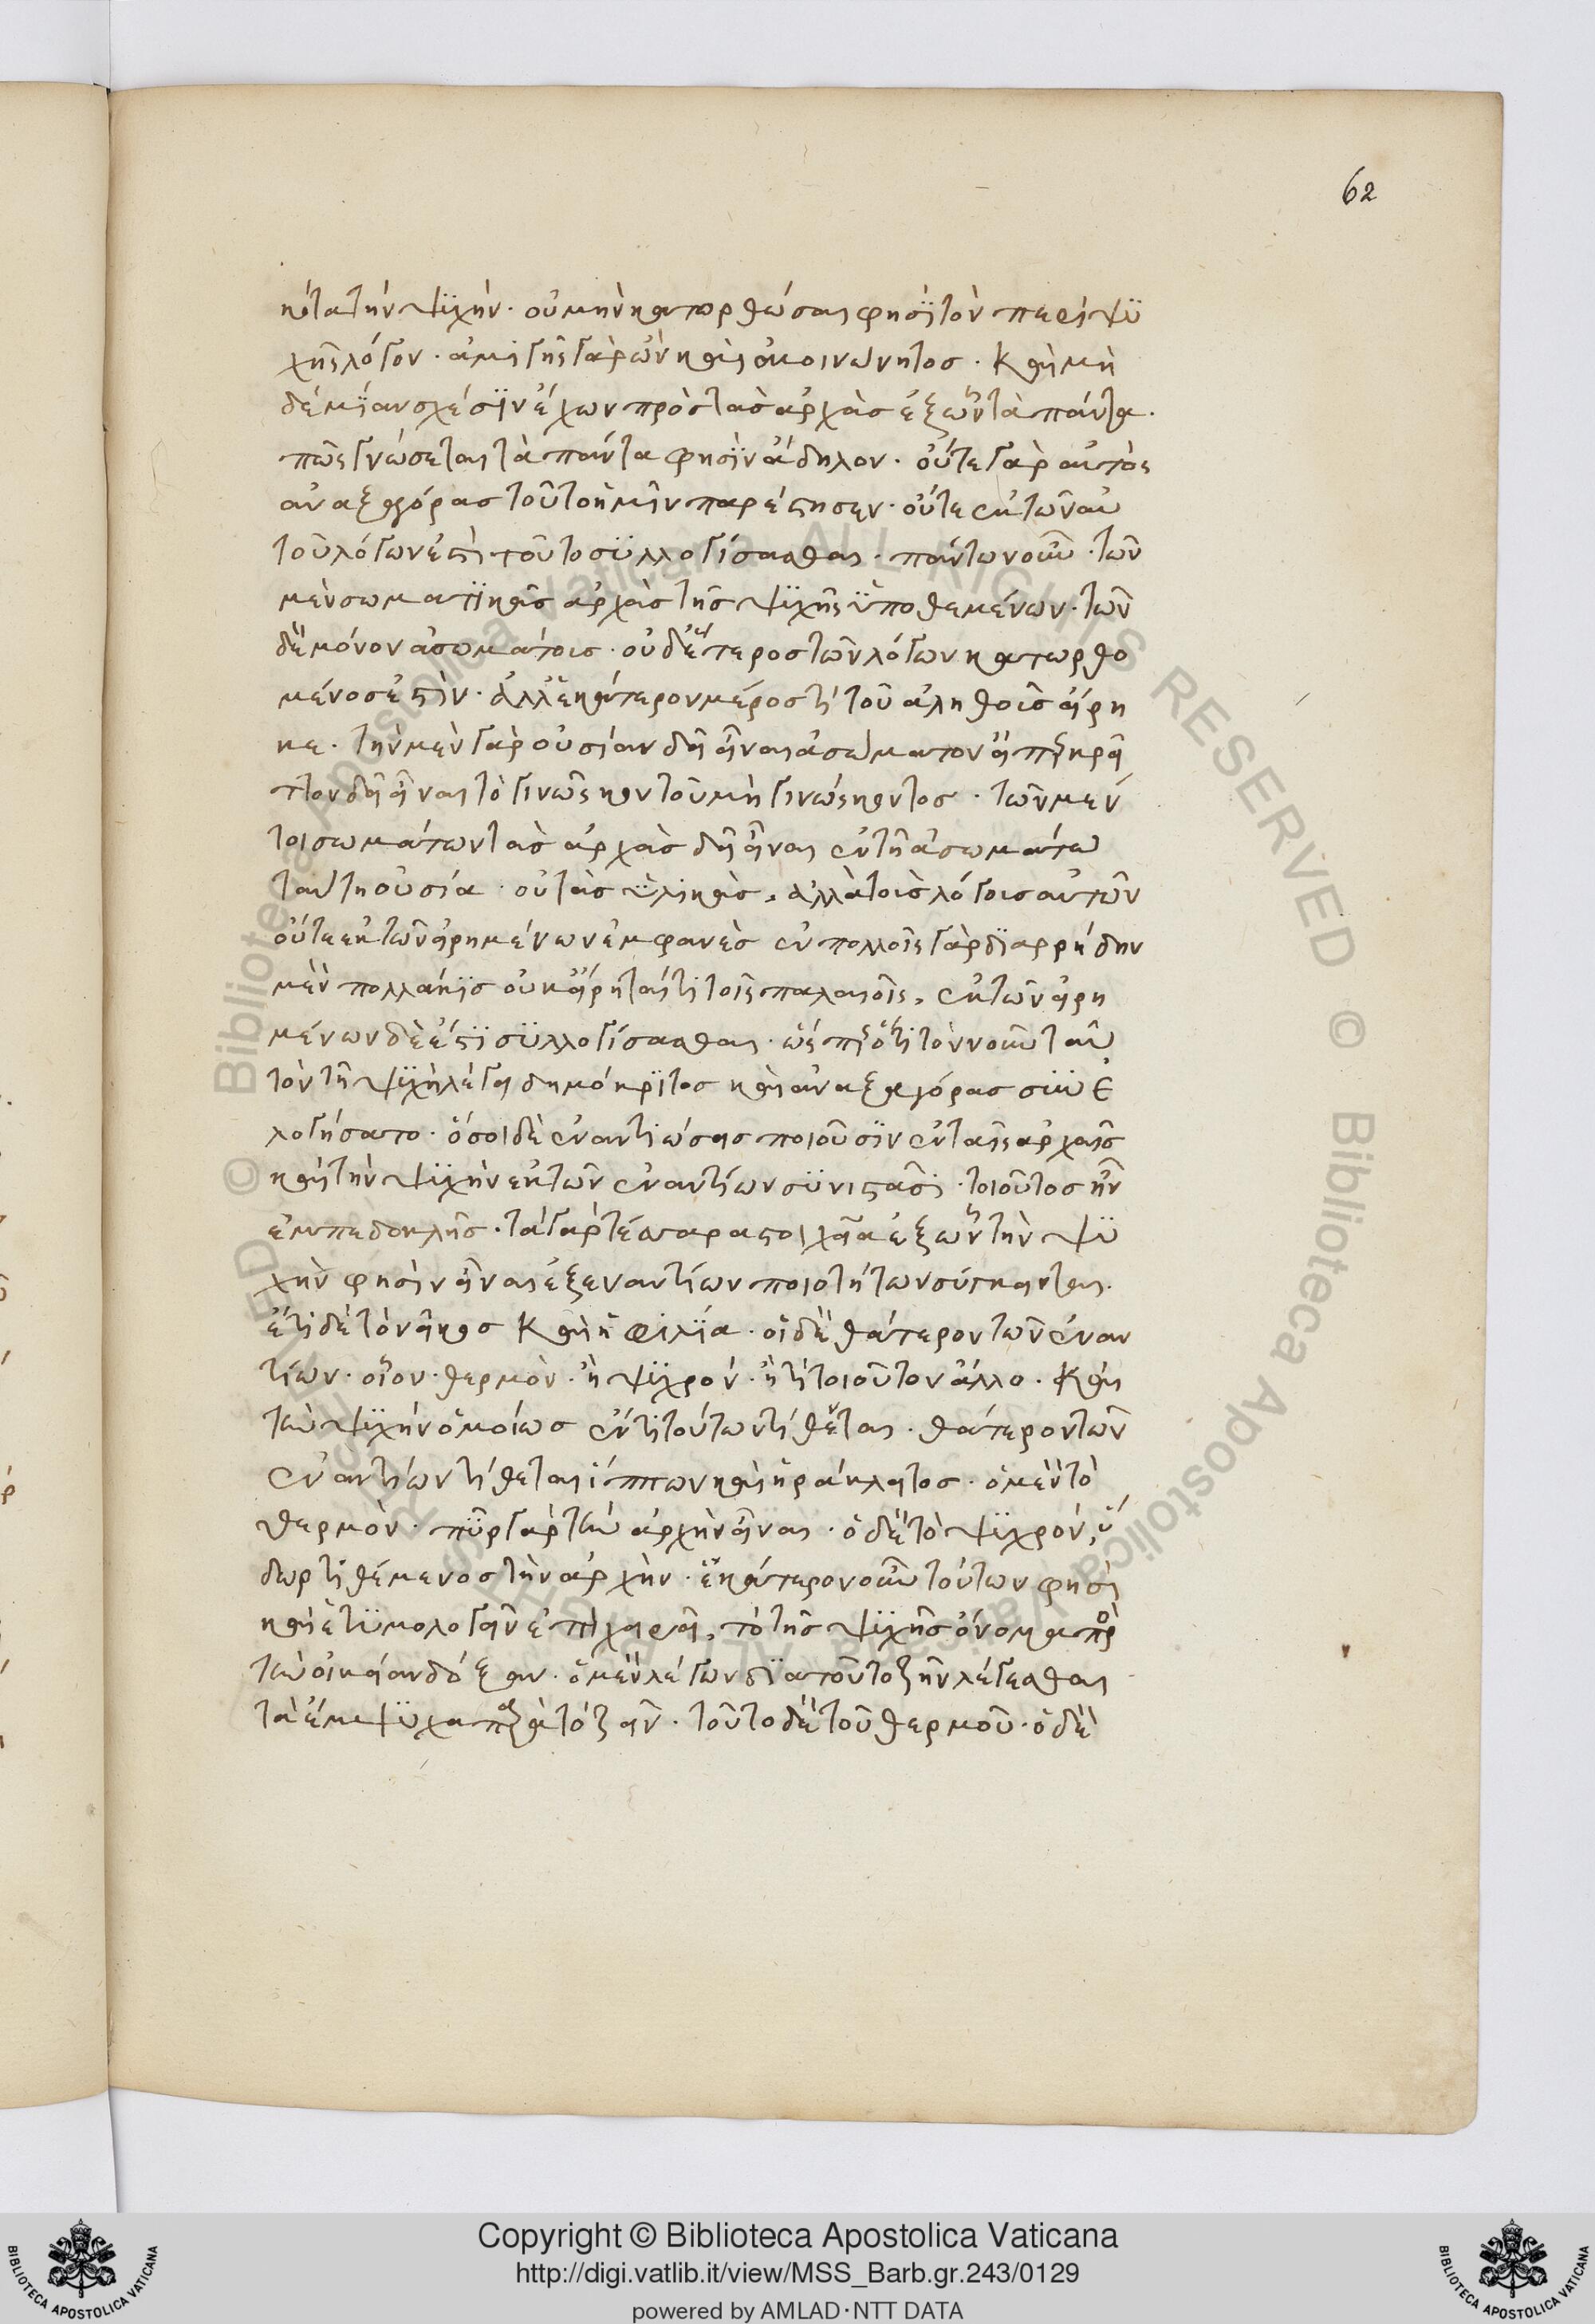 62
κότα τὴν ψϋχήν· οὐ μὴν κατορθώσαι φησῒ τὸν περὶ ψϋ
χῆς λόγον· ἀμιγῆς γὰρ ὢν καὶ ἀκοινώνητος· καὶ μη
δεμίαν σχέσϊν ἔχων πρὸς τὰς ἀρχὰς ἐξ ὧν τὰ πάντα·
πῶς γνώσεται τὰ πάντα φησϊν ἄδηλον· οὔτε γὰρ αὐτὸς
ἀναξαγόρας τοῦτο ἡμῖν παρέστησεν· οὔτε ἐκ τῶν αὐ
τοῦ λόγων ἐστὶ τοῦτο σϋλλογίσασθαι· πάντων οὖν· τῶν
μὲν σωματϊκὰς ἀρχὰς τῆς ψϋχῆς ϋποθεμένων· τῶν
δὲ μόνον ἀσωμάτοις· οὐδέτερος τῶν λόγων κατωρθο
μένος ἐστὶν· ἀλλ' ἑκάτερον μέρος τί τοῦ ἀληθοῦς εἴρη
κε· τὴν μὲν γὰρ οὐσίαν δεῖ εἶναι ἀσώματον εἴπερ κρεῖ
ττον δεῖ εἶναι τὸ γινῶσκον τοῦ μὴ γινώσκοντος· τῶν μέν
τοι σωμάτων τὰς ἀρχὰς δεῖ εἶναι ἐν τῇ ἀσωμάτω
ταύτη οὐσία· οὐ τὰς ϋλικὰς, ἀλλὰ τοὺς λόγους αὐτῶν
οὔτε ἐκ τῶν εἰρημένων ἐμφανὲς ἐν πολλοῖς γὰρ δϊαρρήδην
μὲν πολλάκϊς οὐκ εἴρηταί τι τοῖς παλαιοῖς, ἐκ τῶν εἰρη
μένων δὲ ἔστϊ σϋλλογίσασθαι· ὥσπερ ὅτι τὸν νοῦν ταυ
τὸν τῆ ψϋχῆ λέγει δημόκρϊτος καὶ ἀναξαγόρας σϋνε
λογήσατο· ὅσοι δὲ ἐναντιώσεις ποιοῦσϊν ἐν ταῖς ἀρχαῖς
καὶ τὴν ψϋχὴν ἐκ τῶν ἐναντίων σϋνιστᾶσι· τοιοῦτος ἦν
ἐμπεδοκλῆς· τὰ γὰρ τέσσαρα στοιχεῖα ἐξ ὧν τὴν ψϋ
χὴν φησὶν εἶναι ἐξ ἐναντίων ποιοτήτων σύγκεινται·
ἔτι δὲ τὸ νεῖκος καὶ ἡ φιλϊα· οἱ δὲ θάτερον τῶν ἐναν
τίων· οἷον· θερμὸν· ἢ ψϋχρόν· ἤ τι τοιοῦτον ἄλλο· καὶ
τὴν ψϋχὴν ὁμοίως ἕν τι τούτων τίθεται· θάτερον τῶν
ἐναντίων τίθεται ἵππων καὶ ἡράκλειτος· ὁ μὲν τὸ
θερμὸν· πῦρ γὰρ τὴν ἀρχὴν εἶναι· ὁ δὲ τὸ ψϋχρόν, ὕ
δωρ τιθέμενος τὴν ἀρχὴν· ἑκάτερον οὖν τούτων φησὶ
καὶ ἐτϋμολογεῖν ἐπιχειρεῖ, τὸ τῆς ψϋχῆς ὄνομα πρὸς
τὴν οἰκείαν δόξαν· ὁ μὲν λέγων δϊὰ τοῦτο ζῆν λέγεσθαι
τὰ ἔμψϋχα παρὰ τὸ ζεῖν· τοῦτο δὲ τοῦ θερμοῦ· ὁ δὲ
Copyright © Biblioteca Apostolica Vaticana
http://digi.vatlib.it/view/MSS_Barb.gr.243/0129
powered by AMLAD·NTT DATA